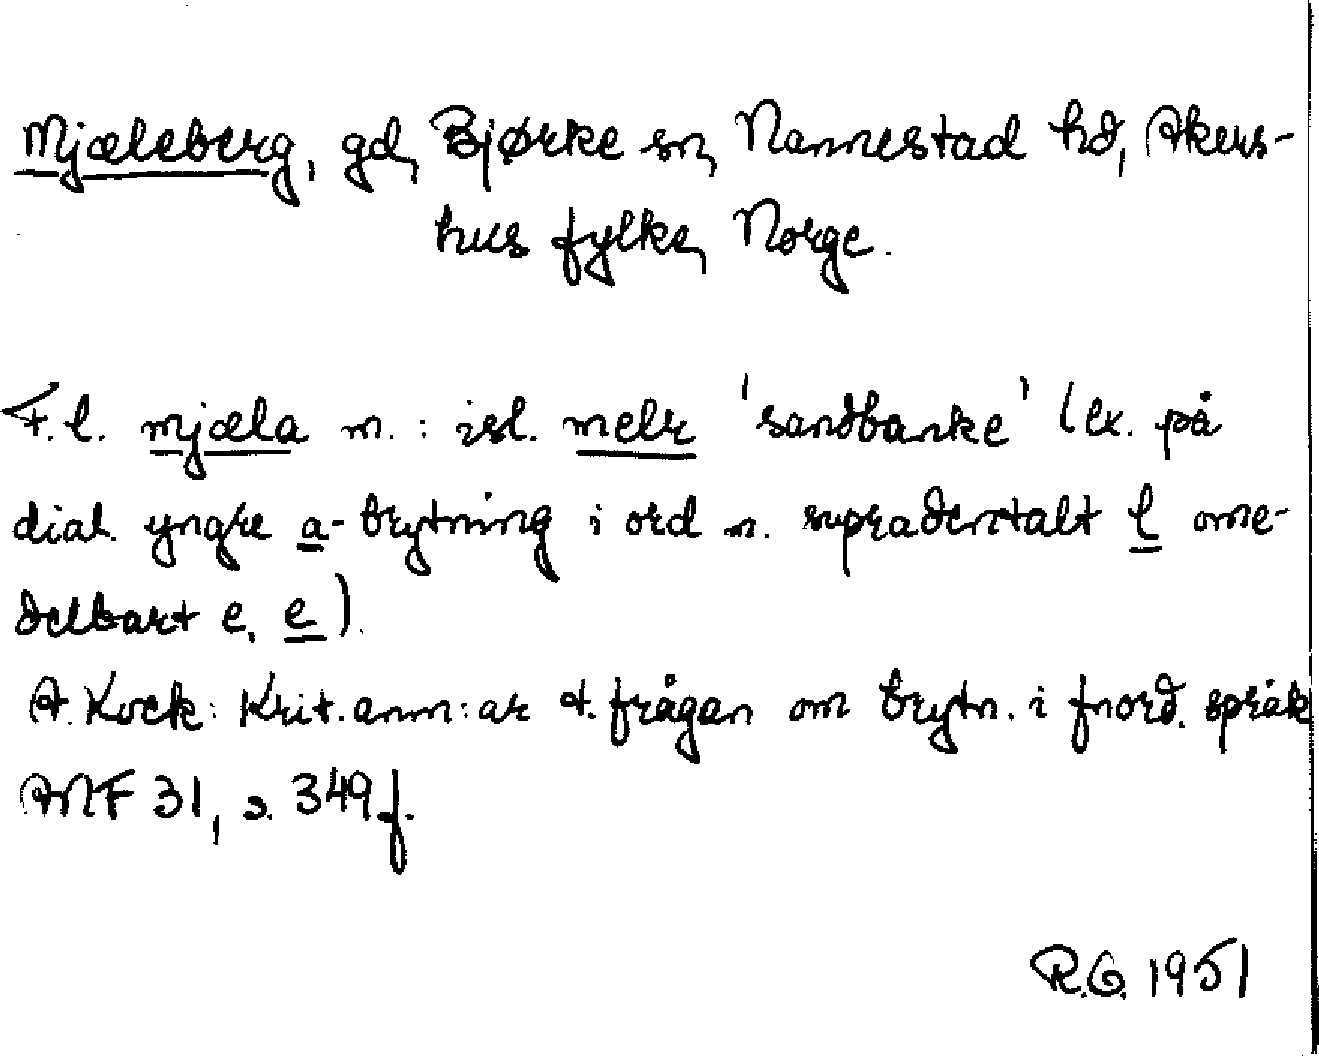 Mjæleberg, gd, Bjørke sn, Nannestad hd, Akers-
hus fylke, Norge.
F.l. mjæla m. : isl. melr 'sandbanke' (ex. på
dial. yngre a-brytning i ord m. supradentalt l ome-
delbart e. e).
A. Kock: Krit. anm:ar t. frågan om brytn. i fnord. språk
ANF 31, s. 349 f.
R.G. 1951